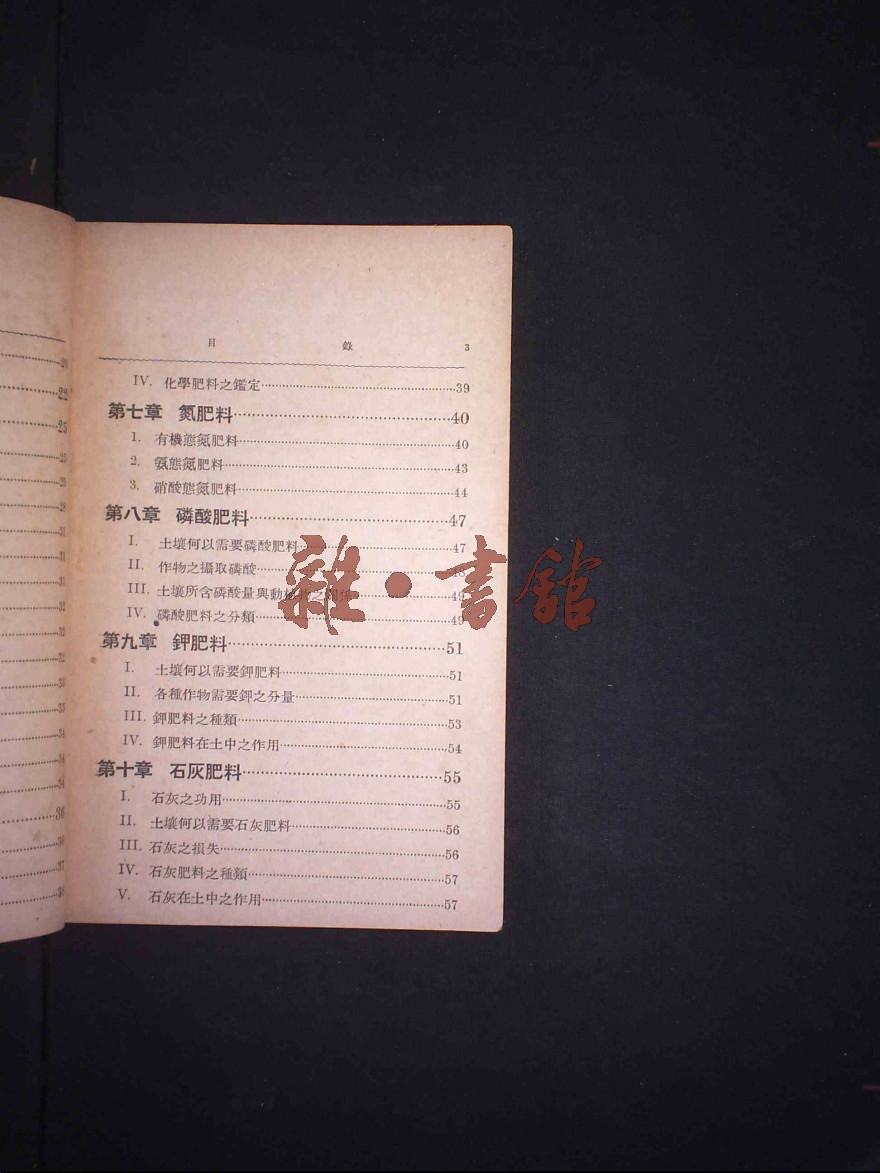 目 錄 3
IV. 化學肥料之鑑定 39
第七章 氮肥料 40
1. 有機態氮肥料 40
2. 氨態氮肥料 43
3. 硝酸態氮肥料 44
第八章 磷酸肥料 47
I. 土壤何以需要磷酸肥料 47
II. 作物之攝取磷酸 48
III. 土壤所含磷酸量與動植物之關係 49
IV. 磷酸肥料之分類 49
第九章 鉀肥料 51
I. 土壤何以需要鉀肥料 51
II. 各種作物需要鉀之分量 51
III. 鉀肥料之種類 53
IV. 鉀肥料在土中之作用 54
第十章 石灰肥料 55
I. 石灰之功用 55
II. 土壤何以需要石灰肥料 56
III. 石灰之損失 56
IV. 石灰肥料之種類 57
V. 石灰在土中之作用 57
雜·書館